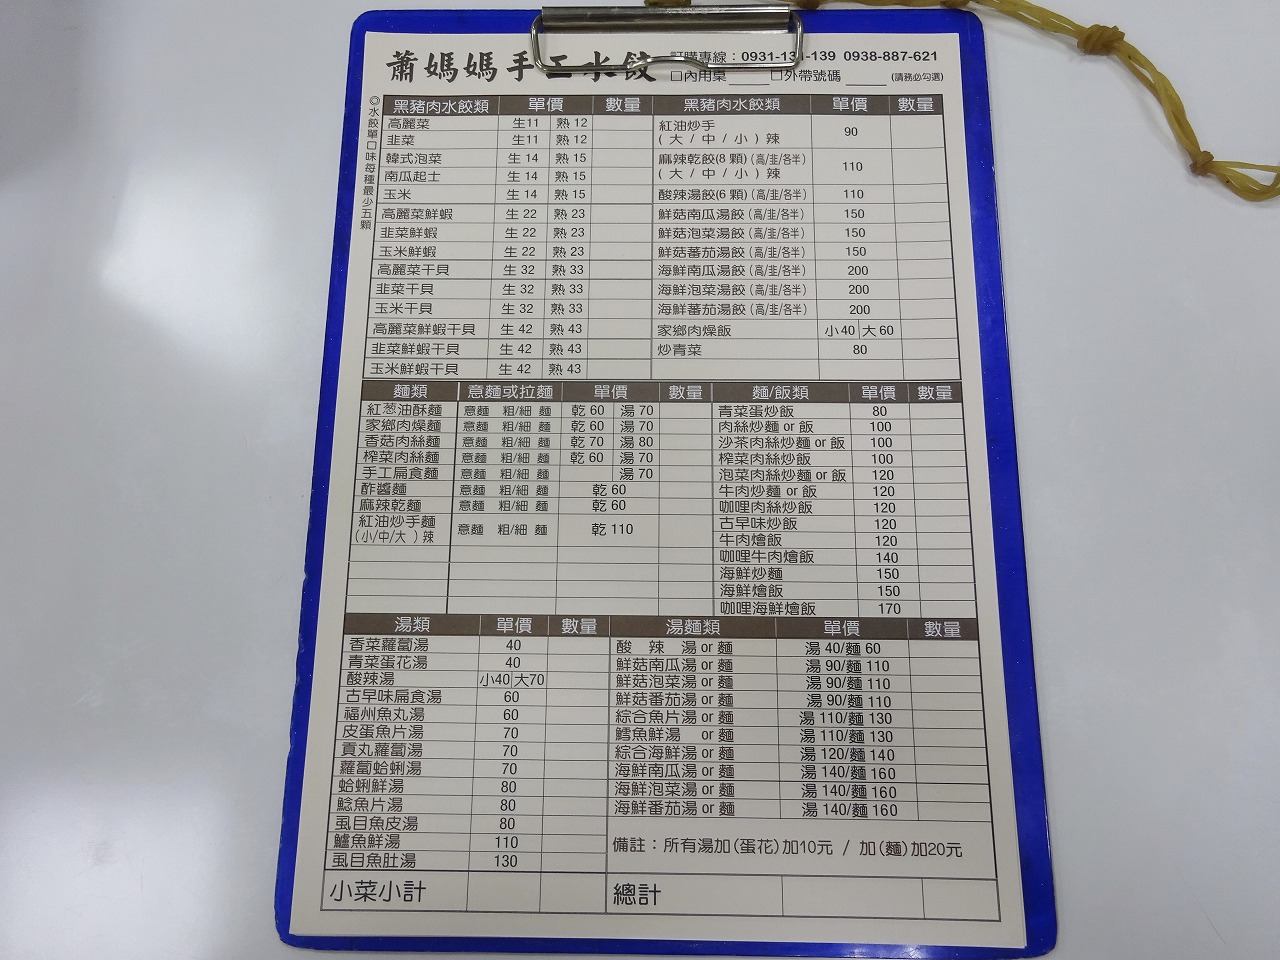 蕭媽媽手工水餃
訂購專線：0931-131-139 0938-887-621
□內用桌____ □外帶號碼____ (請務必勾選)
◎水餃單口味每種最少五顆
黑豬肉水餃類 單價 數量 黑豬肉水餃類 單價 數量
高麗菜 生11 熟12
韭菜 生11 熟12
韓式泡菜 生14 熟15
南瓜起士 生14 熟15
玉米 生14 熟15
高麗菜鮮蝦 生22 熟23
韭菜鮮蝦 生22 熟23
玉米鮮蝦 生22 熟23
高麗菜干貝 生32 熟33
韭菜干貝 生32 熟33
玉米干貝 生32 熟33
高麗菜鮮蝦干貝 生42 熟43
韭菜鮮蝦干貝 生42 熟43
玉米鮮蝦干貝 生42 熟43
紅油炒手 90
(大/中/小)辣
麻辣乾餃(8顆)(高/韭/各半) 110
(大/中/小)辣
酸辣湯餃(6顆)(高/韭/各半) 110
鮮菇南瓜湯餃(高/韭/各半) 150
鮮菇泡菜湯餃(高/韭/各半) 150
鮮菇蕃茄湯餃(高/韭/各半) 150
海鮮南瓜湯餃(高/韭/各半) 200
海鮮泡菜湯餃(高/韭/各半) 200
海鮮蕃茄湯餃(高/韭/各半) 200
家鄉肉燥飯 小40 大60
炒青菜 80
麵類 意麵或拉麵 單價 數量 麵/飯類 單價 數量
紅葱油酥麵 意麵 粗/細 麵 乾60 湯70
家鄉肉燥麵 意麵 粗/細 麵 乾60 湯70
香菇肉絲麵 意麵 粗/細 麵 乾70 湯80
榨菜肉絲麵 意麵 粗/細 麵 乾60 湯70
手工扁食麵 意麵 粗/細 麵 湯70
酢醬麵 意麵 粗/細 麵 乾60
麻辣乾麵 意麵 粗/細 麵 乾60
紅油炒手麵 意麵 粗/細 麵 乾110
(小/中/大)辣
青菜蛋炒飯 80
肉絲炒麵 or 飯 100
沙茶肉絲炒麵 or 飯 100
榨菜肉絲炒飯 100
泡菜肉絲炒麵 or 飯 120
牛肉炒麵 or 飯 120
咖哩肉絲炒飯 120
古早味炒飯 120
牛肉燴飯 120
咖哩牛肉燴飯 140
海鮮炒麵 150
海鮮燴飯 150
咖哩海鮮燴飯 170
湯類 單價 數量 湯麵類 單價 數量
香菜蘿蔔湯 40
青菜蛋花湯 40
酸辣湯 小40 大70
古早味扁食湯 60
福州魚丸湯 60
皮蛋魚片湯 70
貢丸蘿蔔湯 70
蘿蔔蛤蜊湯 70
蛤蜊鮮湯 80
鯰魚片湯 80
虱目魚皮湯 80
鱸魚鮮湯 110
虱目魚肚湯 130
酸 辣 湯 or 麵 湯40/麵60
鮮菇南瓜湯 or 麵 湯90/麵110
鮮菇泡菜湯 or 麵 湯90/麵110
鮮菇番茄湯 or 麵 湯90/麵110
綜合魚片湯 or 麵 湯110/麵130
鱈魚鮮湯 or 麵 湯110/麵130
綜合海鮮湯 or 麵 湯120/麵140
海鮮南瓜湯 or 麵 湯140/麵160
海鮮泡菜湯 or 麵 湯140/麵160
海鮮番茄湯 or 麵 湯140/麵160
備註：所有湯加(蛋花)加10元 / 加(麵)加20元
小菜小計 總計